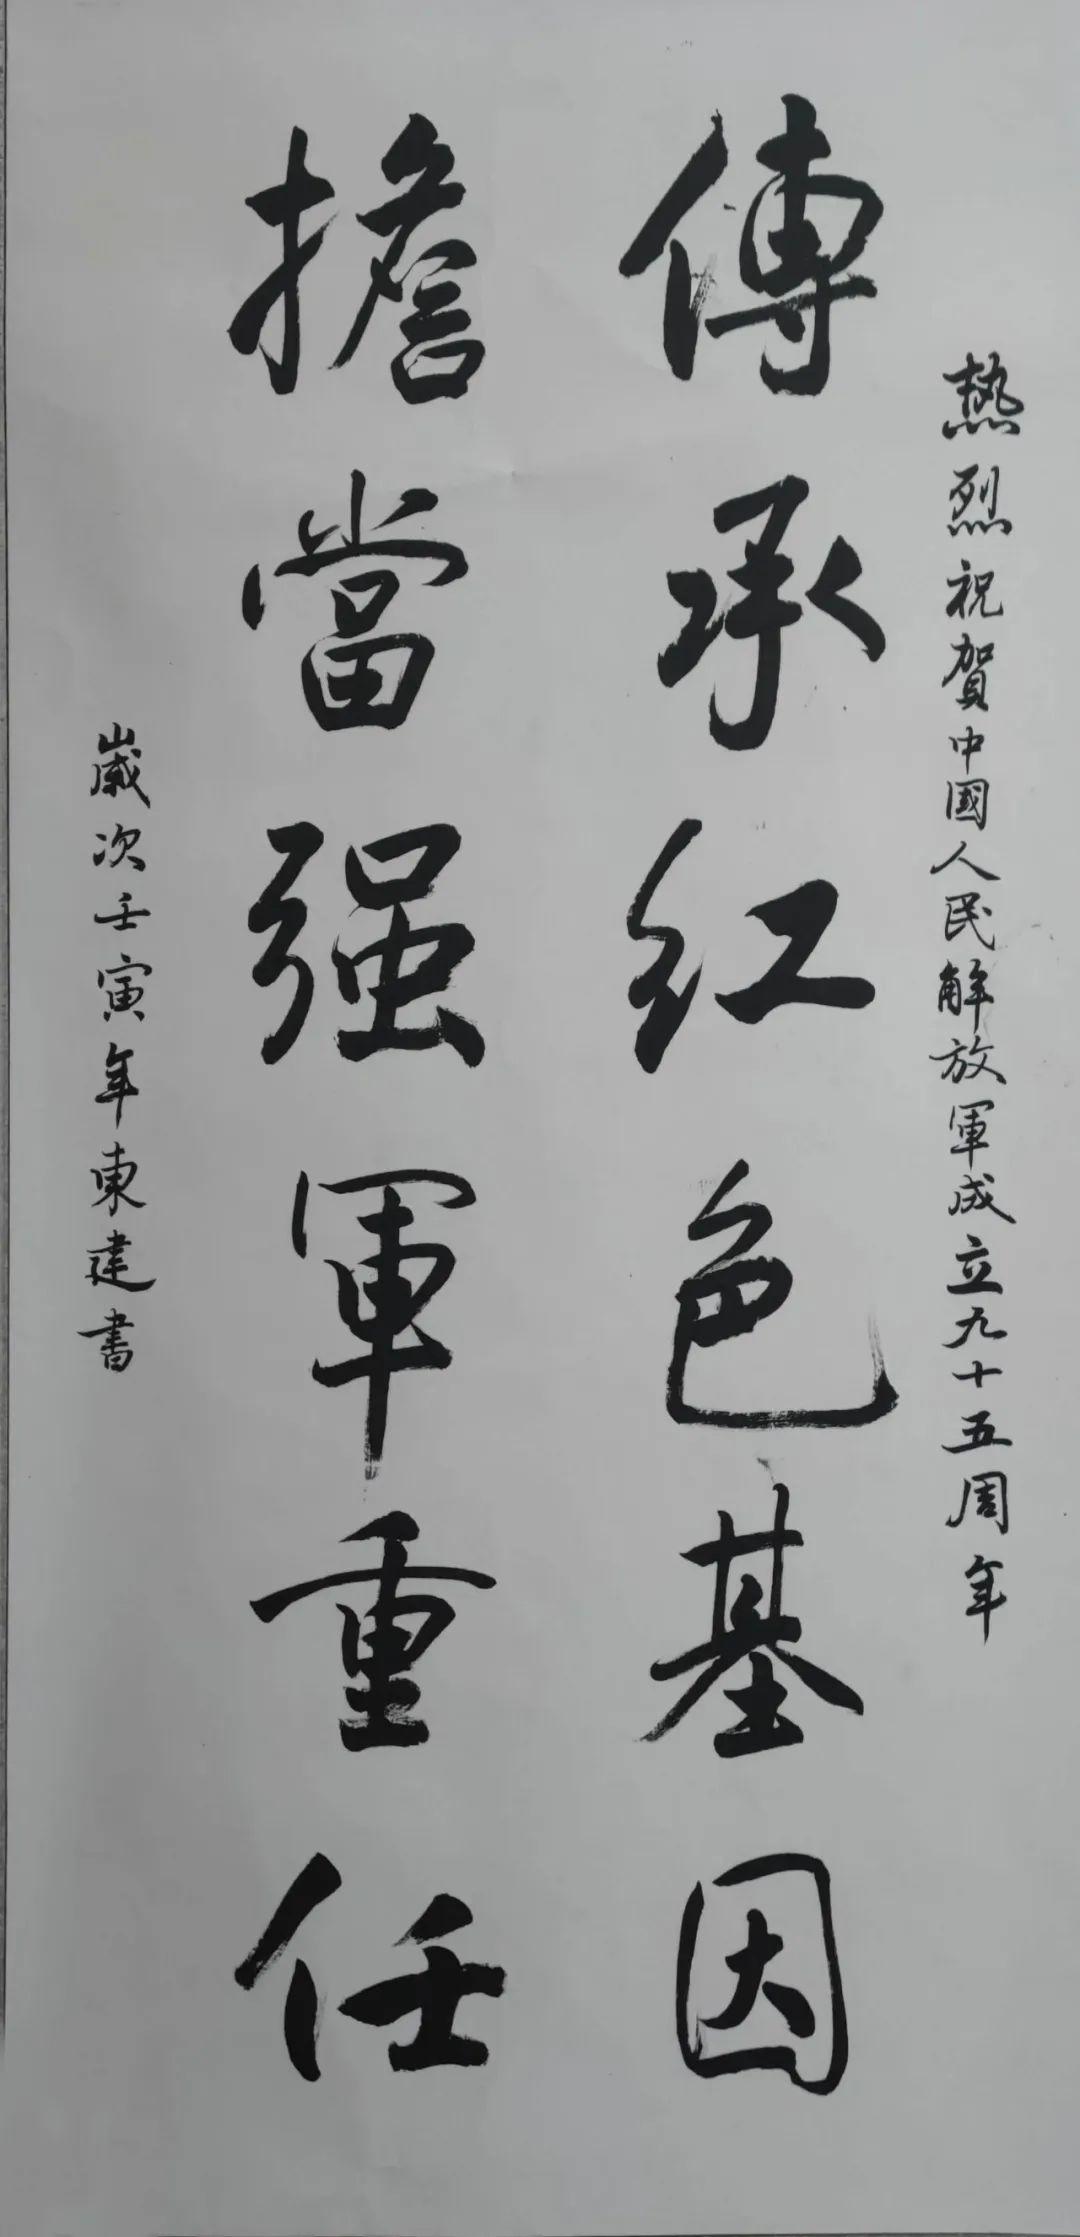 热烈祝賀中國人民解放軍成立九十五周年
傳承红色基因
擔當强軍重任
歲次壬寅年東建書